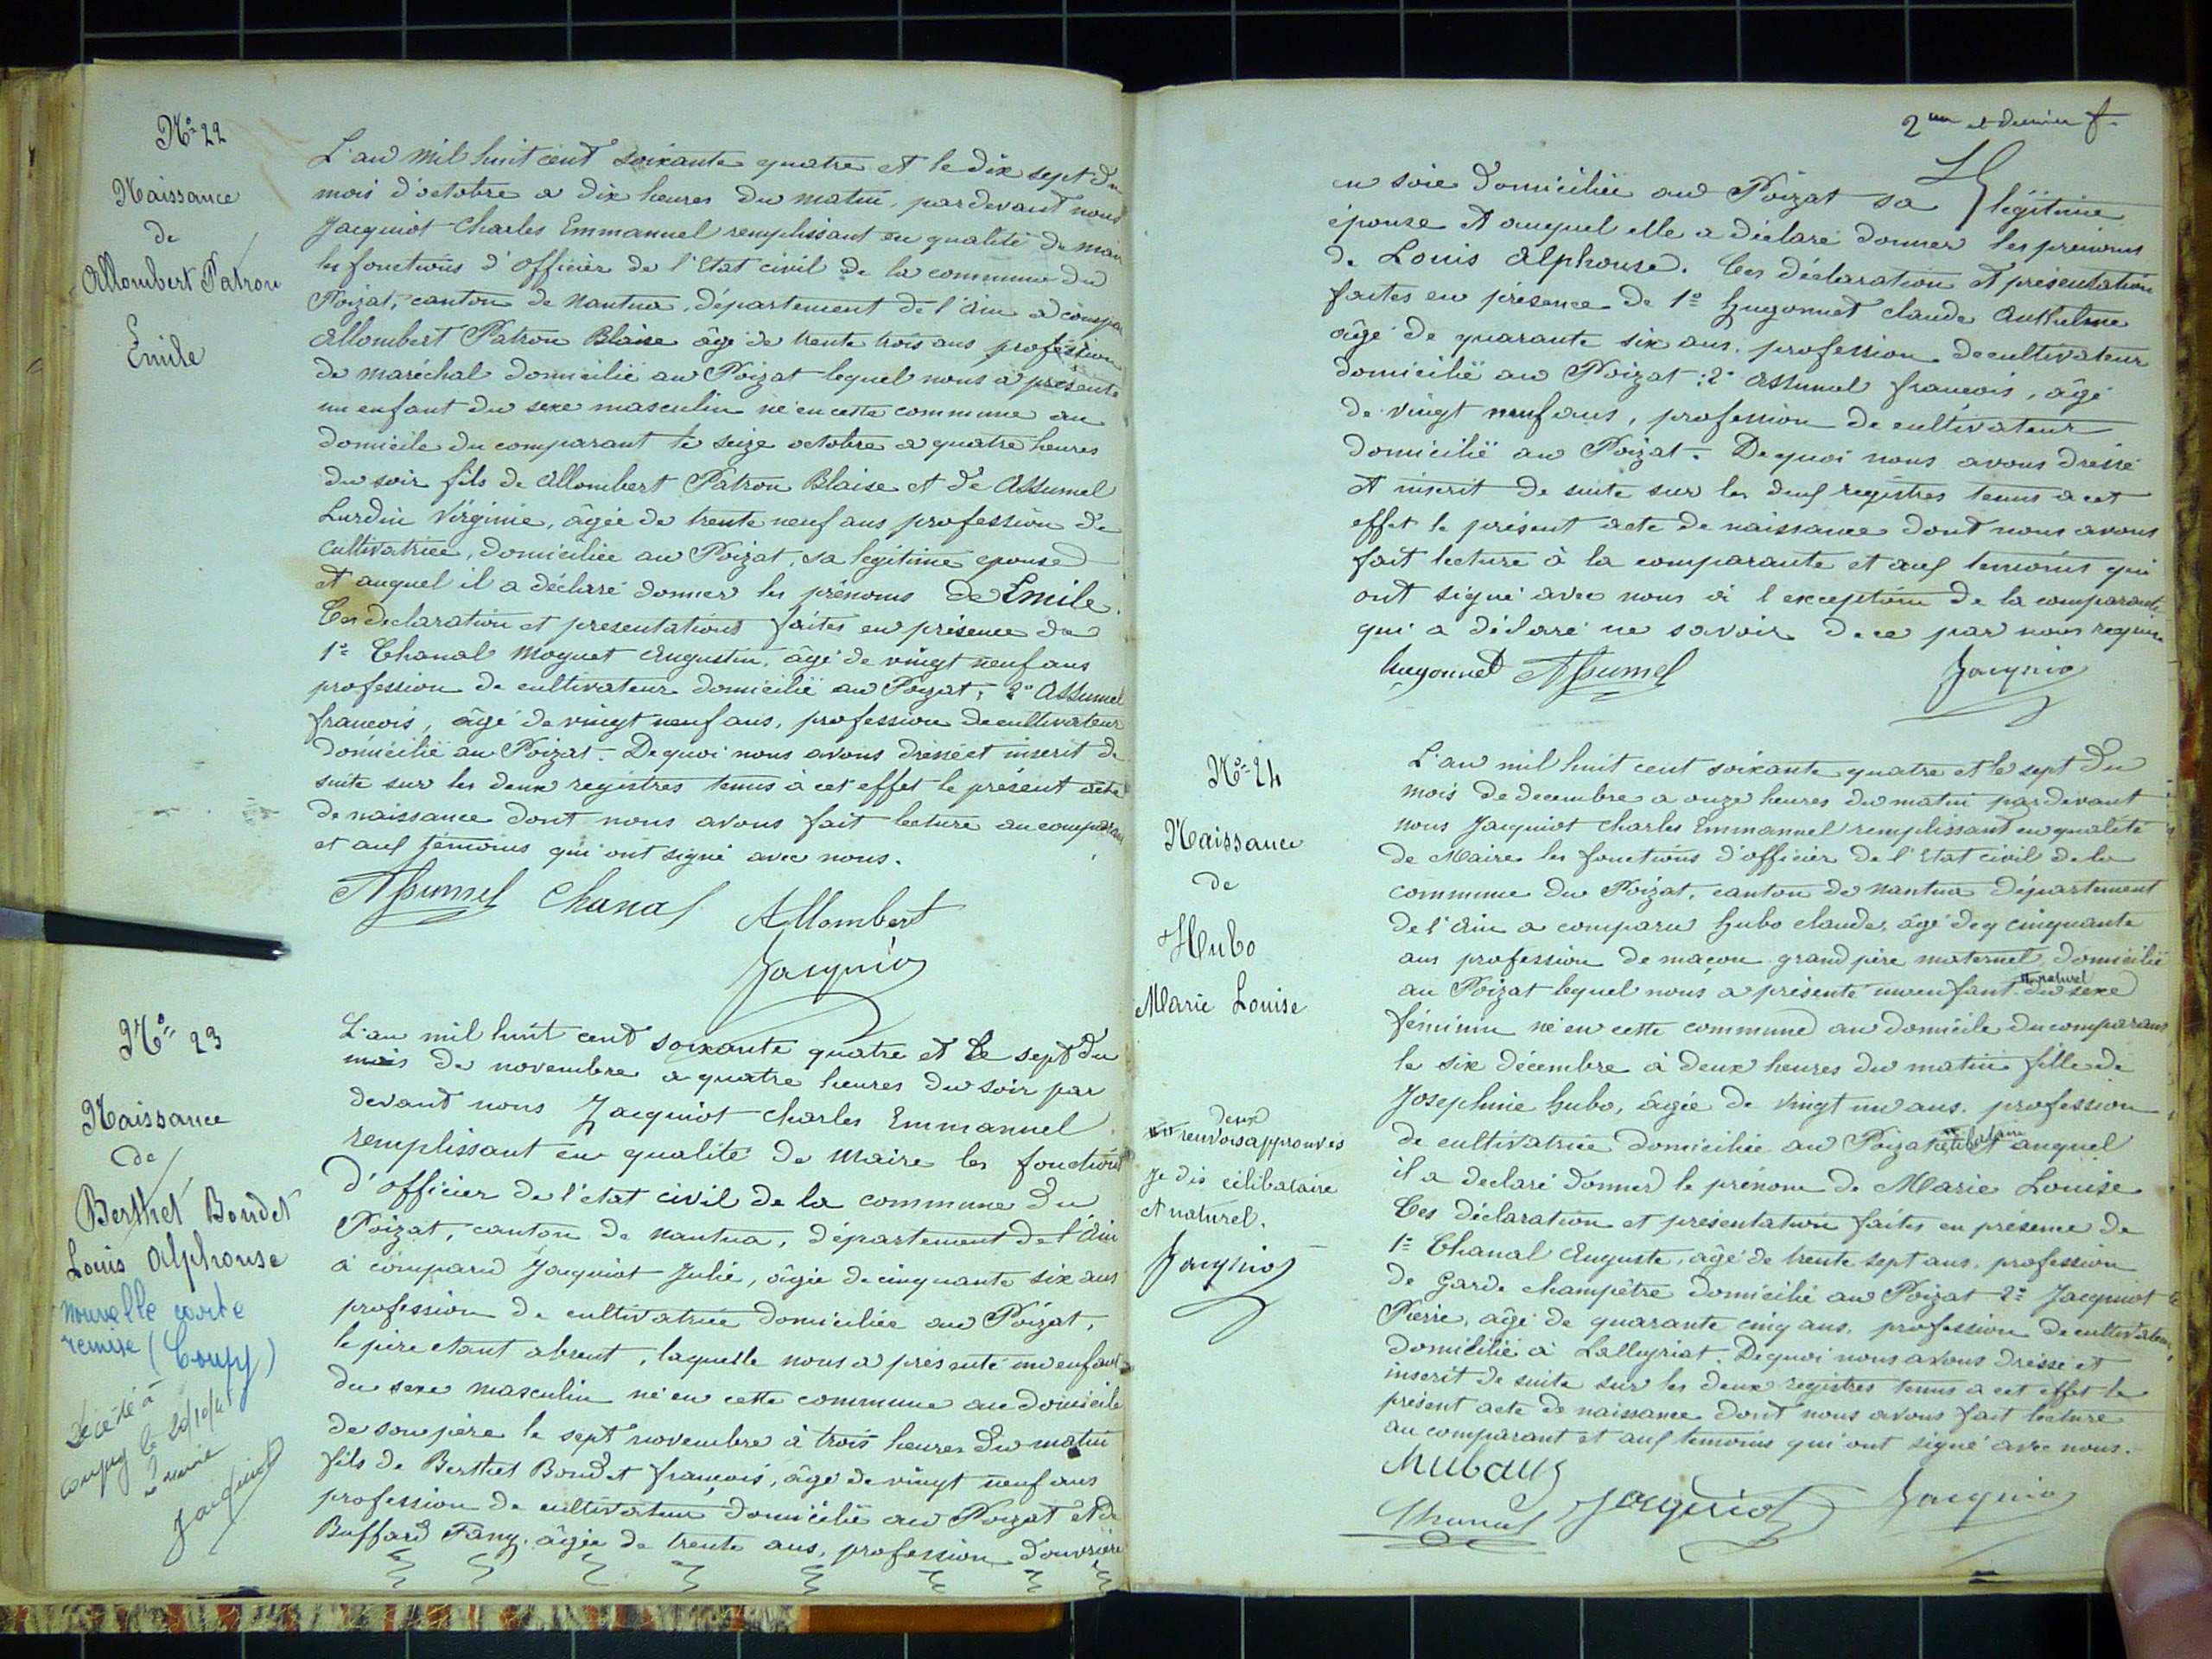 Nº 22
Naissance
de
Allombert Patron
Emile
L'an mil huit cent soixante quatre et le dix sept du
mois d'octobre a dix heures du matin, pardevant nous
Jacquiot Charles Emmanuel remplissant en qualité de maire
les fonctions d'officier de l'Etat civil de la commune du
Poizat, canton de Nantua, département de l'Ain a compa
Allombert Patron Blaise âgé de trente trois ans profession
de maréchal domicilié au Poizat lequel nous a présenté
un enfant du sexe masculin né en cette commune au
domicile du comparant le seize octobre a quatre heures
du soir fils de Allombert Patron Blaise et de Assumel
Lurdin Virginie, âgée de trente neuf ans profession de
cultivatrice, domiciliée au Poizat, sa legitime epouse
et auquel il a déclaré donner les prénoms de Emile.
Ces declaration et presentations faites en présence de
1º Chanal Moquet Augustin, âgé de vingt neuf ans
profession de cultivateur domicilié au Poizat, 2º Assumel
francois, âgé de vingt neuf ans, profession de cultivateur
domicilié au Poizat. De quoi nous avons dressé et inscrit de
suite sur les deux registres tenus à cet effet le présent acte
de naissance dont nous avons fait lecture au comparant
et aux témoins qui ont signé avec nous.
Assumel Chanal Allombert
Jacquiot
Nº 23
Naissance
de
Berthet Bondet
Louis Alphonse
nouvelle carte
remise (Coupy)
Décédé à
Coupy le 20/10/41
Jacquiot
L'an mil huit cent soixante quatre et le sept du
mois de novembre a quatre heures du soir par
devant nous Jacquiot Charles Emmanuel
remplissant en qualité de Maire les fonctions
d'officier de l'etat civil de la commune du
Poizat, canton de Nantua, département de l'Ain
a comparu Jacquiot Julie, âgée de cinquante six ans
profession de cultivatrice domiciliée au Poizat,
le père etant absent, laquelle nous a présenté un enfant
du sexe masculin né en cette commune au domicile
de son père le sept novembre à trois heures du matin
fils de Berthet Bondet françois, âgé de vingt neuf ans
profession de cultivateur domicilié au Poizat et de
Buffard Fany, âgée de trente ans, profession d'ouvrière
2me et dernier f.
en soie domiciliée au Poizat sa légitime
épouse et auquel elle a déclaré donner les prénoms
de Louis Alphonse. Ces déclaration et présentation
faites en présence de 1º Hugonnet Claude Anthelme
âgé de quarante six ans, profession de cultivateur
domicilié au Poizat; 2º Assumel francois, âgé
de vingt neuf ans, profession de cultivateur
domicilié au Poizat. De quoi nous avons dressé
et inscrit de suite sur les deux registres tenus a cet
effet le présent acte de naissance dont nous avons
fait lecture à la comparante et aux temoins qui
ont signé avec nous à l'exception de la comparante
qui a déclaré ne savoir de ce par nous requise
hugonnet Assumel Jacquiot
Nº 24
Naissance
de
Hubo
Marie Louise
L'an mil huit cent soixante quatre et le sept du
mois de decembre a onze heures du matin pardevant
nous Jacquiot Charles Emmanuel remplissant en qualité
de Maire les fonctions d'officier de l'Etat civil de la
commune du Poizat, canton de Nantua département
de l'Ain a comparu Hubo Claude, âgé de cinquante
ans profession de maçon grand père maternel, domicilié
au Poizat lequel nous a présenté un enfant naturel du sexe
féminin né en cette commune au domicile du comparant
le six décembre à deux heures du matin fille de
Josephine Hubo, âgée de vingt un ans, profession
de cultivatrice domiciliée au Poizat célibataire et auquel
il a déclaré donner le prénom de Marie Louise
Ces déclaration et présentation faites en présence de
1º Chanal Auguste, âgé de trente sept ans, profession
de Garde champêtre domicilié au Poizat 2º Jacquiot
Pierre, âgé de quarante cinq ans, profession de cultivateur
domicilié à Lalleyriat. De quoi nous avons dressé et
inscrit de suite sur les deux registres tenus a cet effet le
présent acte de naissance dont nous avons fait lecture
au comparant et aux temoins qui ont signé avec nous.
deux
renvois approuvés
je dis célibataire
et naturel.
Jacquiot
Chanal Jacquiot Jacquiot